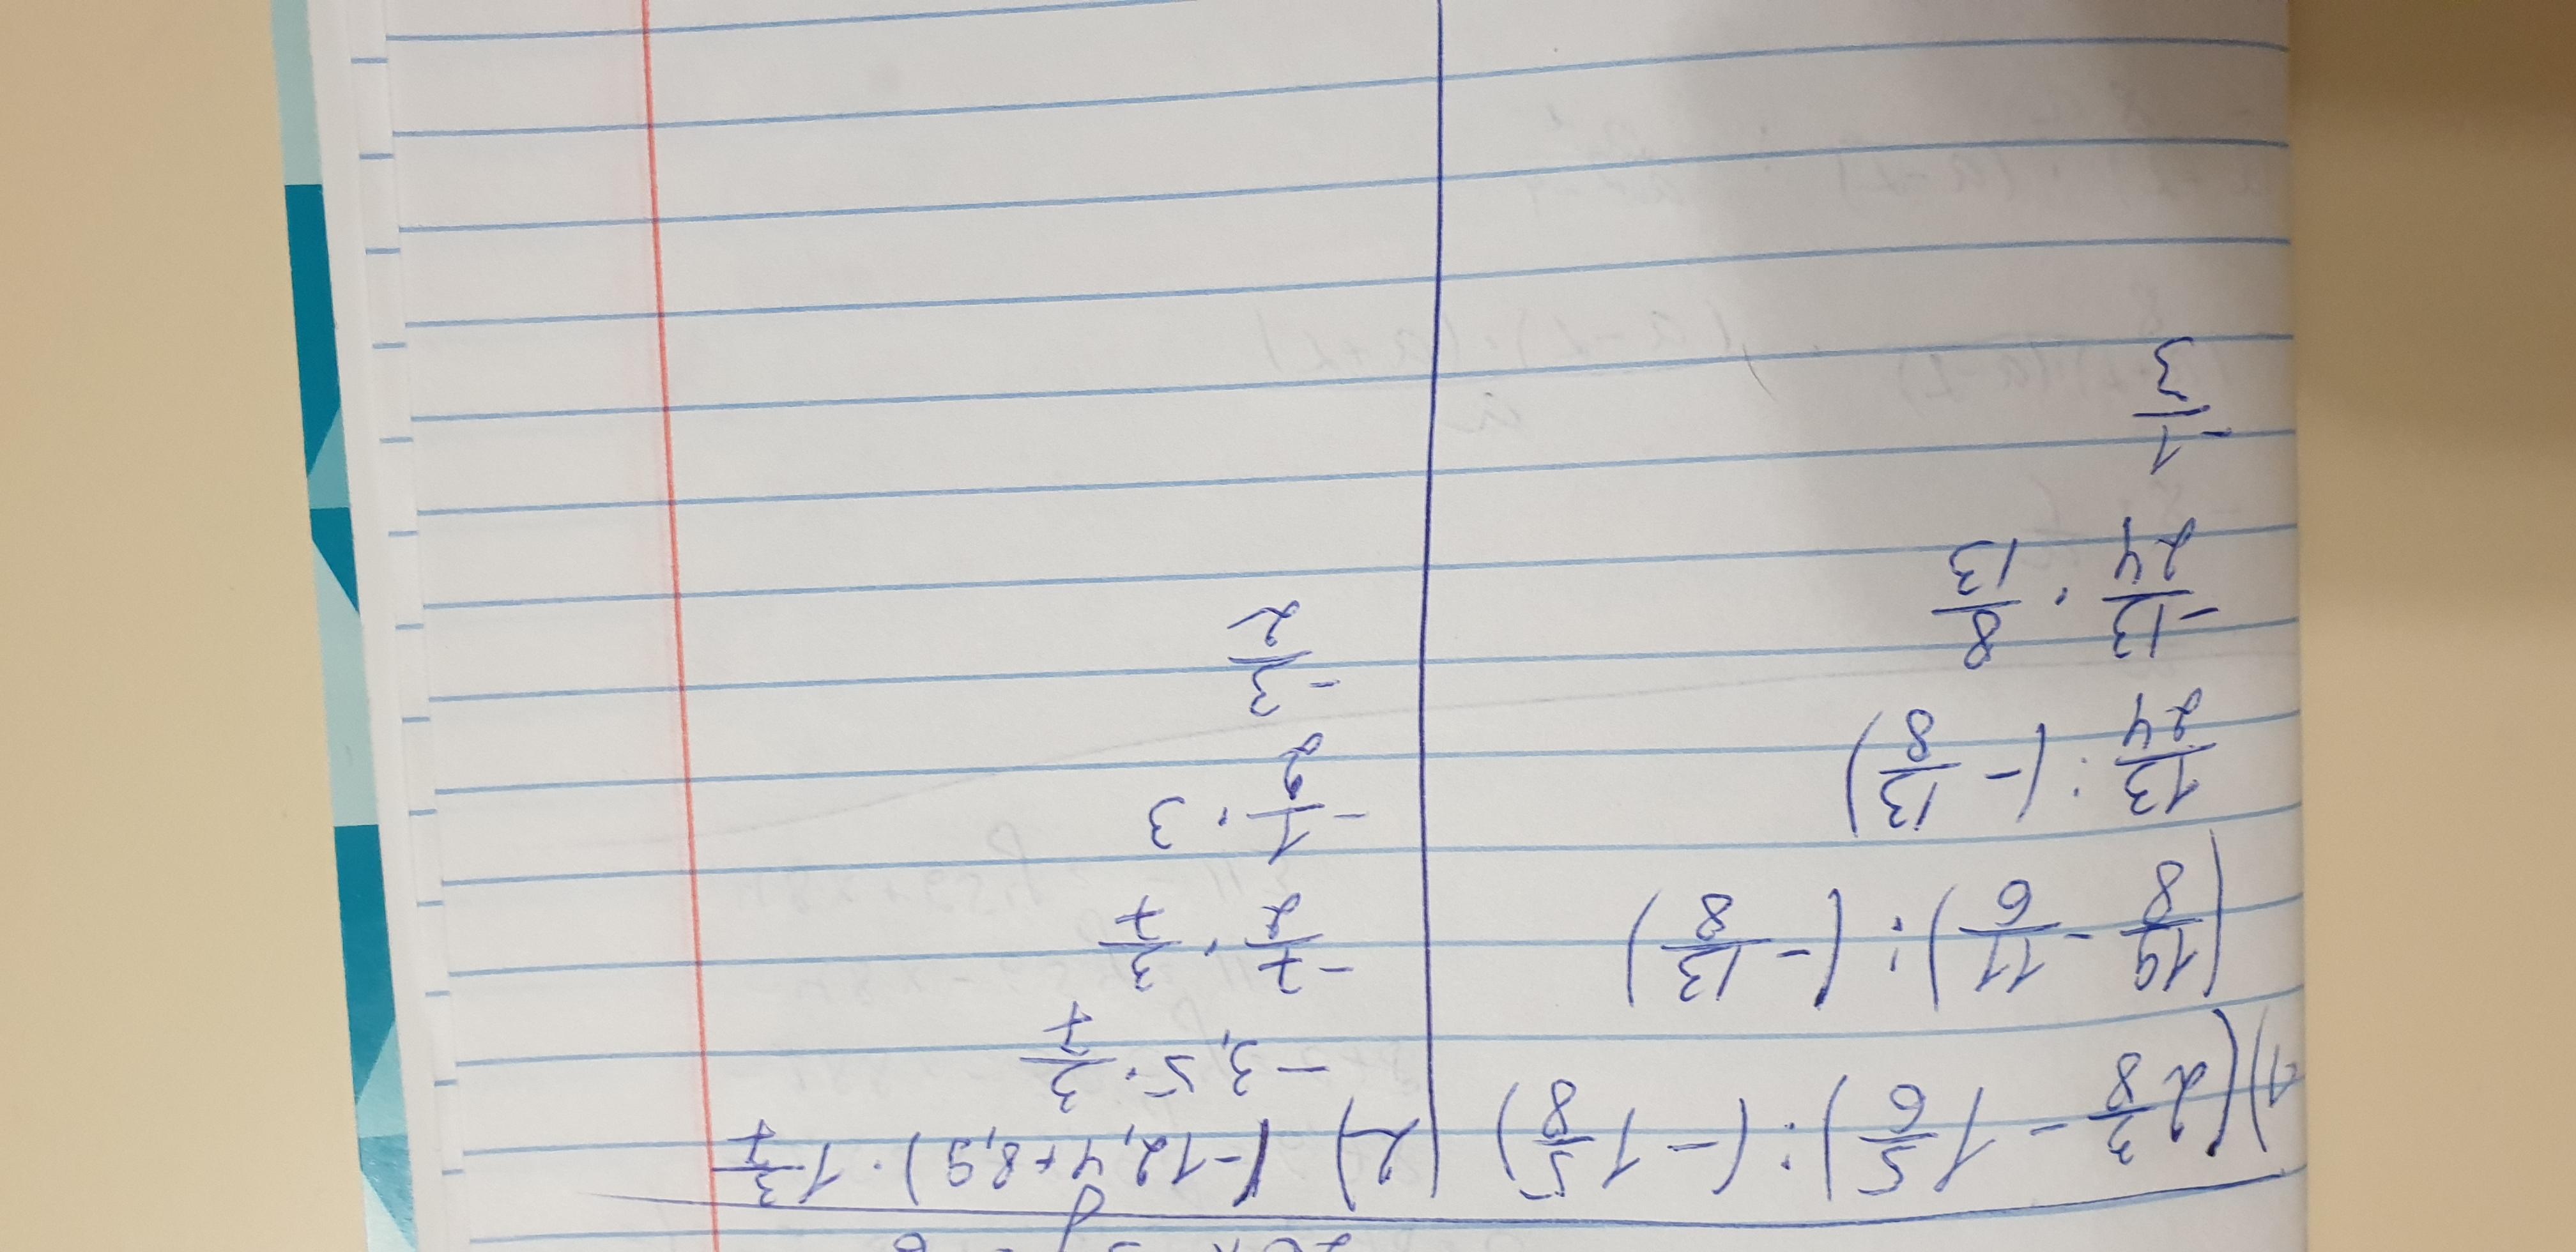 1) (2 3/8 - 1 5/6) : (-1 5/8)
(19/8 - 11/6) : (-13/8)
13/24 : (-13/8)
-13/24 · 8/13
-1/3
2) (-12,4+8,9) · 1 3/7
-3,5 · 3/7
-7/2 · 3/7
-1/2 · 3
-3/2